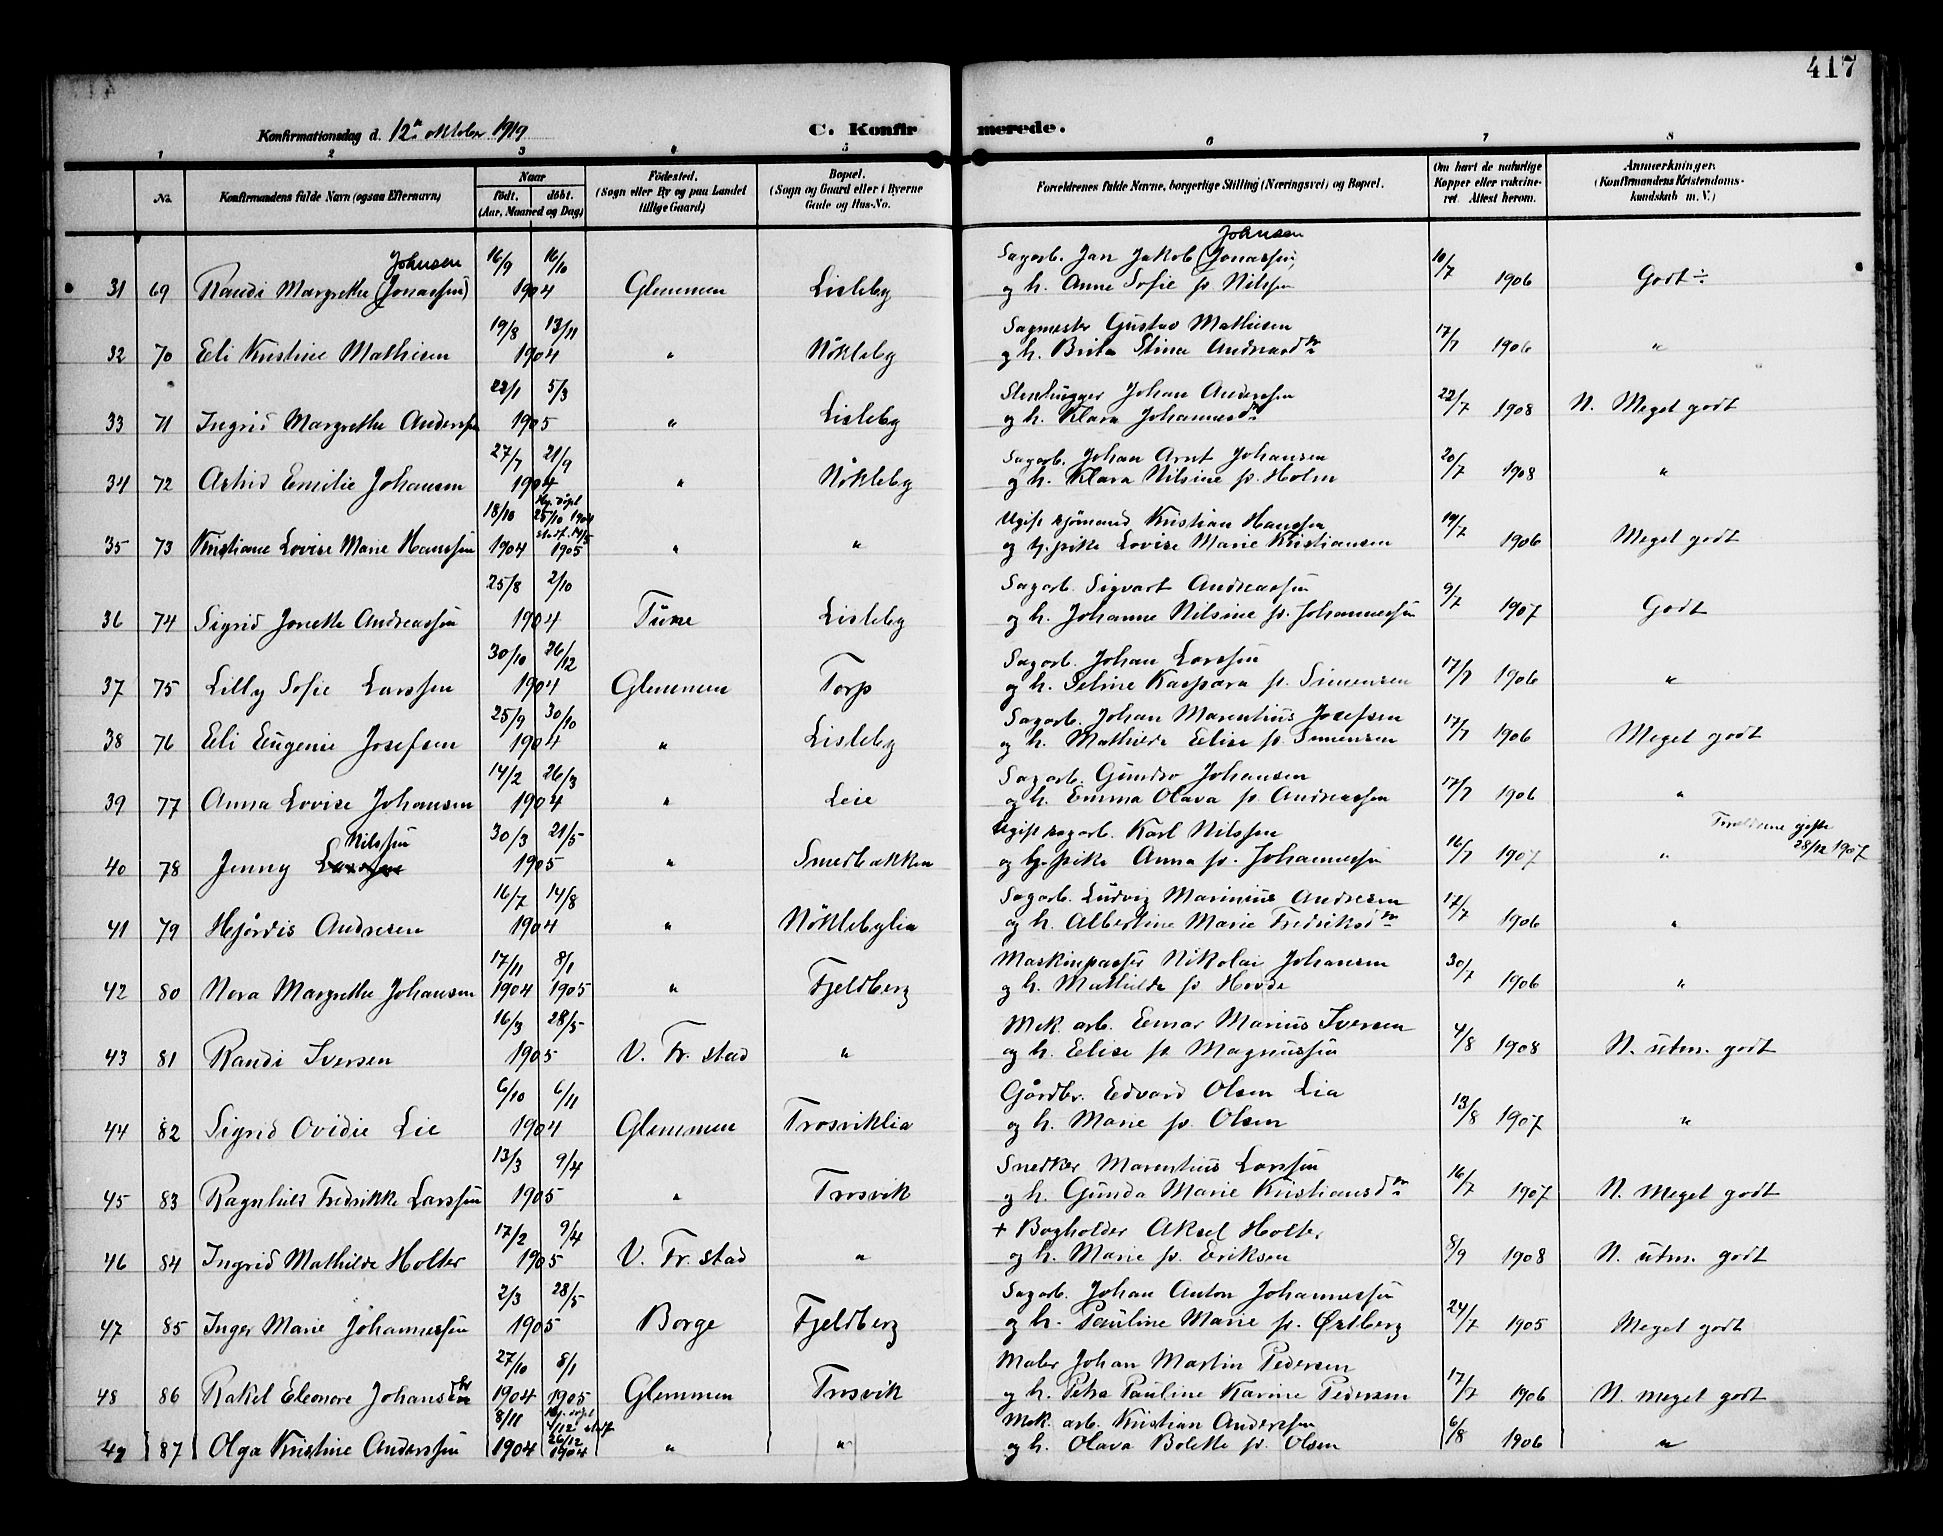 417
Konfirmationsdag d. 12te oktober 1919 C. Konfirmerede.
1 2 3 4 5 6 7 8
No. Konfirmandens fulde Navn (ogsaa Efternavn) Naar født, døbt. (Aar, Maaned og Dag) Fødested. (Sogn eller By og paa Landet tillige Gaard) Bopæl. (Sogn og Gaard eller i Byerne Gade og Hus-No. Forældrenes fulde Navne, borgerlige Stilling (Næringsvei) og Bopæl. Om havt de naturlige Kopper eller vakcineret. Attest herom. Anmærkninger. (Konfirmandens Kristendomskundskab m. V.)
Johnsen 16/9 16/10 Sagarb. Jan Jakob (Jonassen) Johnsen 10/7
31 69 Randi Margrethe (Jonassen) 1904 Glemmen Lisleby og h. Anne Sofie f. Nilssen 1906 Godt ÷
19/8 13/11 Sagmester Gustav Mathisen 17/7
32 70 Eli Kristine Mathisen 1904 " Nökleby og h. Brita Stina Andreasdtr 1906 "
22/1 5/3 Stenhugger Johan Anderssen 22/7
33 71 Ingrid Margrethe Anderssen 1905 " Lisleby og h. Klara Johannesdtr 1908 N. Meget godt
27/7 21/9 Sagarb. Johan Arnt Johansen 20/7
34 72 Astrid Emilie Johansen 1904 " Nökleby og h. Klara Nilsine f. Holm 1908 "
18/10 25/10 1904 Ugift sjömand Kristian Hanssen 19/7
35 73 Kristiane Lovise Marie Hanssen 1904 1905 " " og pike Lovise Marie Kristiansen 1906 Meget godt
25/8 2/10 Sagarb. Sigvart Andreassen 9/7
36 74 Sigrid Jonette Andreassen 1904 Tune Lisleby og h. Johanne Nilsine f. Johannessen 1907 Godt
30/10 26/12 Sagarb. Johan Larssen 17/7
37 75 Lilly Sofie Larssen 1904 Glemmen Torp og h. Seline Kaspara f. Simensen 1906 "
25/9 30/10 Sagarb. Johan Marentius Josefsen 17/7
38 76 Eli Eugenie Josefsen 1904 " Lisleby og h. Mathilde Elise f. Simensen 1906 Meget godt
14/2 26/3 Sagarb. Gundro Johansen 17/7
39 77 Anna Lovise Johansen 1904 " Leie og h. Emma Olava f. Andreassen 1906 "
Nilssen 30/3 21/5 Ugift sagarb. Karl Nilssen 16/7 gifte
40 78 Jenny Larssen 1905 " Smedbakken og pike Anna f. Johannessen 1907 " 28/12 1907
16/7 14/8 Sagarb. Ludvig Marinius Andresen 17/7
41 79 Hjördis Andresen 1904 " Nöklebylia og h. Albertine Marie Fredriksdtr 1906 "
17/11 8/1 Maskinpasser Nikolai Johansen 30/7
42 80 Nora Margrethe Johansen 1904 1905 " Fjeldberg og h. Mathilde f. Hovde 1906 "
16/3 28/5 Mek. arb. Einar Marius Iversen 4/8
43 81 Randi Iversen 1905 V. Fr. stad " og h. Elise f. Magnussen 1908 N. utm. godt
6/10 6/11 Gårdbr. Edvard Olsen Lia 13/8
44 82 Sigrid Ovidie Lie 1904 Glemmen Trosviklia og h. Marie f. Olsen 1907 "
13/3 9/4 Snedker Marentius Larssen 16/7
45 83 Ragnhild Fredrikke Larssen 1905 " Trosvik og h. Gunda Marie Kristiansdtr 1907 N. meget godt
17/2 9/4 + Bogholder Aksel Holter 8/9
46 84 Ingrid Mathilde Holter 1905 V. Fr. stad " og h. Marie f. Eriksen 1908 N. utm. godt
2/3 28/5 Sagarb. Johan Anton Johannessen 24/7
47 85 Inger Marie Johannessen 1905 Borge Fjeldberg og h. Pauline Marie f. Østberg 1905 Meget godt
27/10 8/1 Maler Johan Martin Pedersen 17/7
48 86 Rakel Eleonore Johansdtr 1904 1905 Glemmen Trosvik og h. Petra Pauline Karine Pedersen 1906 N. meget godt
8/11 4/12 26/12 Mek. arb. Kristian Anderssen 6/8
49 87 Olga Kristine Anderssen 1904 1904 " " og h. Olava Bolette f. Olsen 1906 "